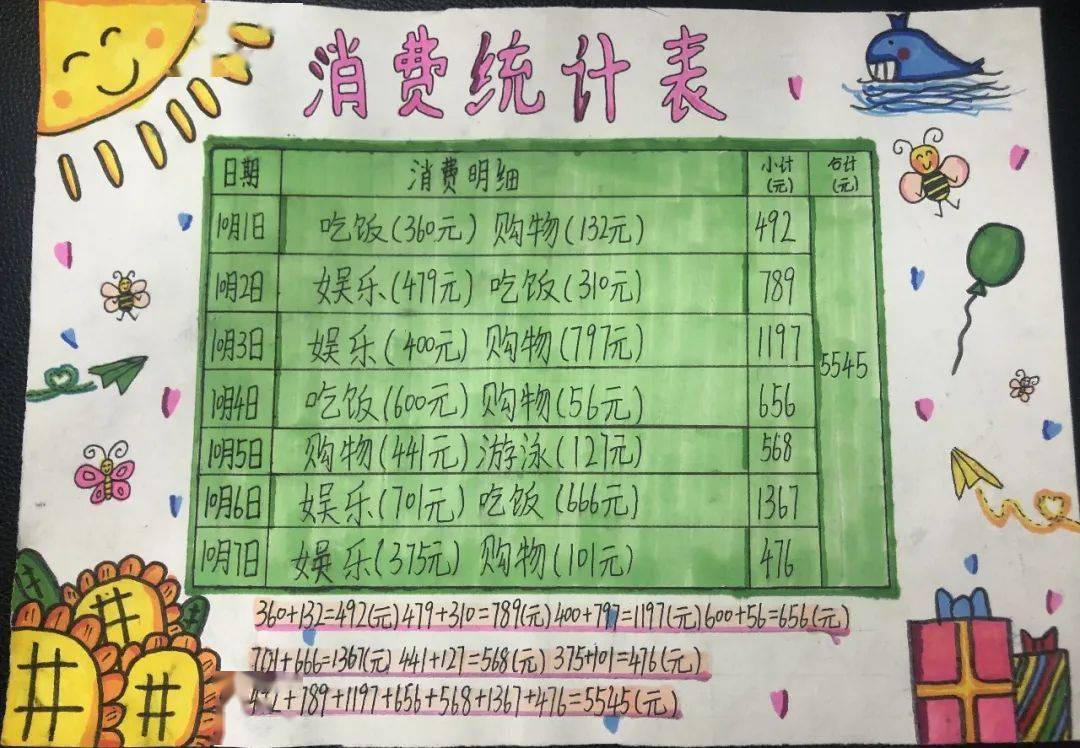 消费统计表
日期 消费明细 小计(元) 合计(元)
10月1日 吃饭(360元) 购物(132元) 492
10月2日 娱乐(479元) 吃饭(310元) 789
10月3日 娱乐(400元) 购物(797元) 1197
5545
10月4日 吃饭(600元) 购物(56元) 656
10月5日 购物(441元) 游泳(127元) 568
10月6日 娱乐(701元) 吃饭(666元) 1367
10月7日 娱乐(375元) 购物(101元) 476
360+132=492(元) 479+310=789(元) 400+797=1197(元) 600+56=656(元)
701+666=1367(元) 441+127=568(元) 375+101=476(元)
492+789+1197+656+568+1367+476=5545(元)